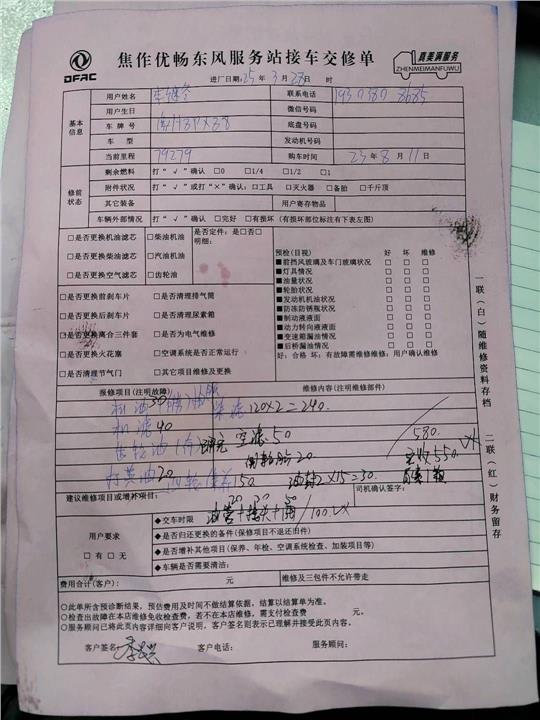 DFAC
焦作优畅东风服务站接车交修单
真美满服务
ZHENMEIMANFUWU
进厂日期：25 年 3 月 28 日 时
基本信息
用户姓名
联系电话
用户生日
微信号码
车 牌 号
底盘号码
车 型
发动机号码
当前里程 79279
购车时间 23 年 8 月 11 日
修前状态
剩余燃料 打“√”确认 □0 □1/4 □1/2 □1
附件状况 打“√”或打“×”确认：□工具 □灭火器 □备胎 □千斤顶
其它装备 用户寄存物品
车辆外部情况 打“√”确认 □完好 □有损坏（有损坏部位标注有下表左图）
□是否更换机油滤芯 □柴油机油
□是否更换柴油滤芯 □汽油机油
□是否更换空气滤芯 □齿轮油
是否定件：是□否□
明细：
□是否更换前刹车片 □是否清理排气筒
□是否更换后刹车片 □是否清理尿素箱
□是否更换离合三件套 □是否为电气维修
□是否更换火花塞 □空调系统是否正常运行
□是否清理节气门 □其它项目维修及更换
预检(目视) 好 坏 维修
■前挡风玻璃及车门玻璃状况 □ □ □
■灯具情况 □ □ □
■油量状况 □ □ □
■轮胎状况 □ □ □
■发动机机油状况 □ □ □
■防冻防锈瓶状况 □ □ □
■制动液液面 □ □ □
■动力转向液液面 □ □ □
■变速箱漏油情况 □ □ □
■后桥漏油情况 □ □ □
好：合格 坏：有故障需维修维修：用户确认维修
报修项目(注明故障) 维修内容(注明维修部件)
机油30
120×2=240
机滤40
齿轮油
空滤50
580
20
实收550
打黄油20
150
油封2×15=30
建议维修项目或增补项目：
司机确认签字：
20 30 50
油管+接头+
/100
用户要求
□有 □无
◆交车时限
◆是否归还更换的备件(保修项目不退还旧件)
◆是否增补其他项目(保养、年检、空调系统检查、加装项目等)
◆车辆是否需要清洁：
费用合计(客户)： 元 维修及三包件不允许带走
○此单所含预诊断结果，预估费用及时间不做结算依据，结算以结算单为准。
○检查出故障在本店维修免收检查费，若不在本店维修，需支付检查费 元。
○服务顾问已将此页内容详细向客户说明，客户签名则表示已理解并接受此页内容。
客户签名： 客户电话： 服务顾问：
一联（白）随维修资料存档
二联（红）财务留存